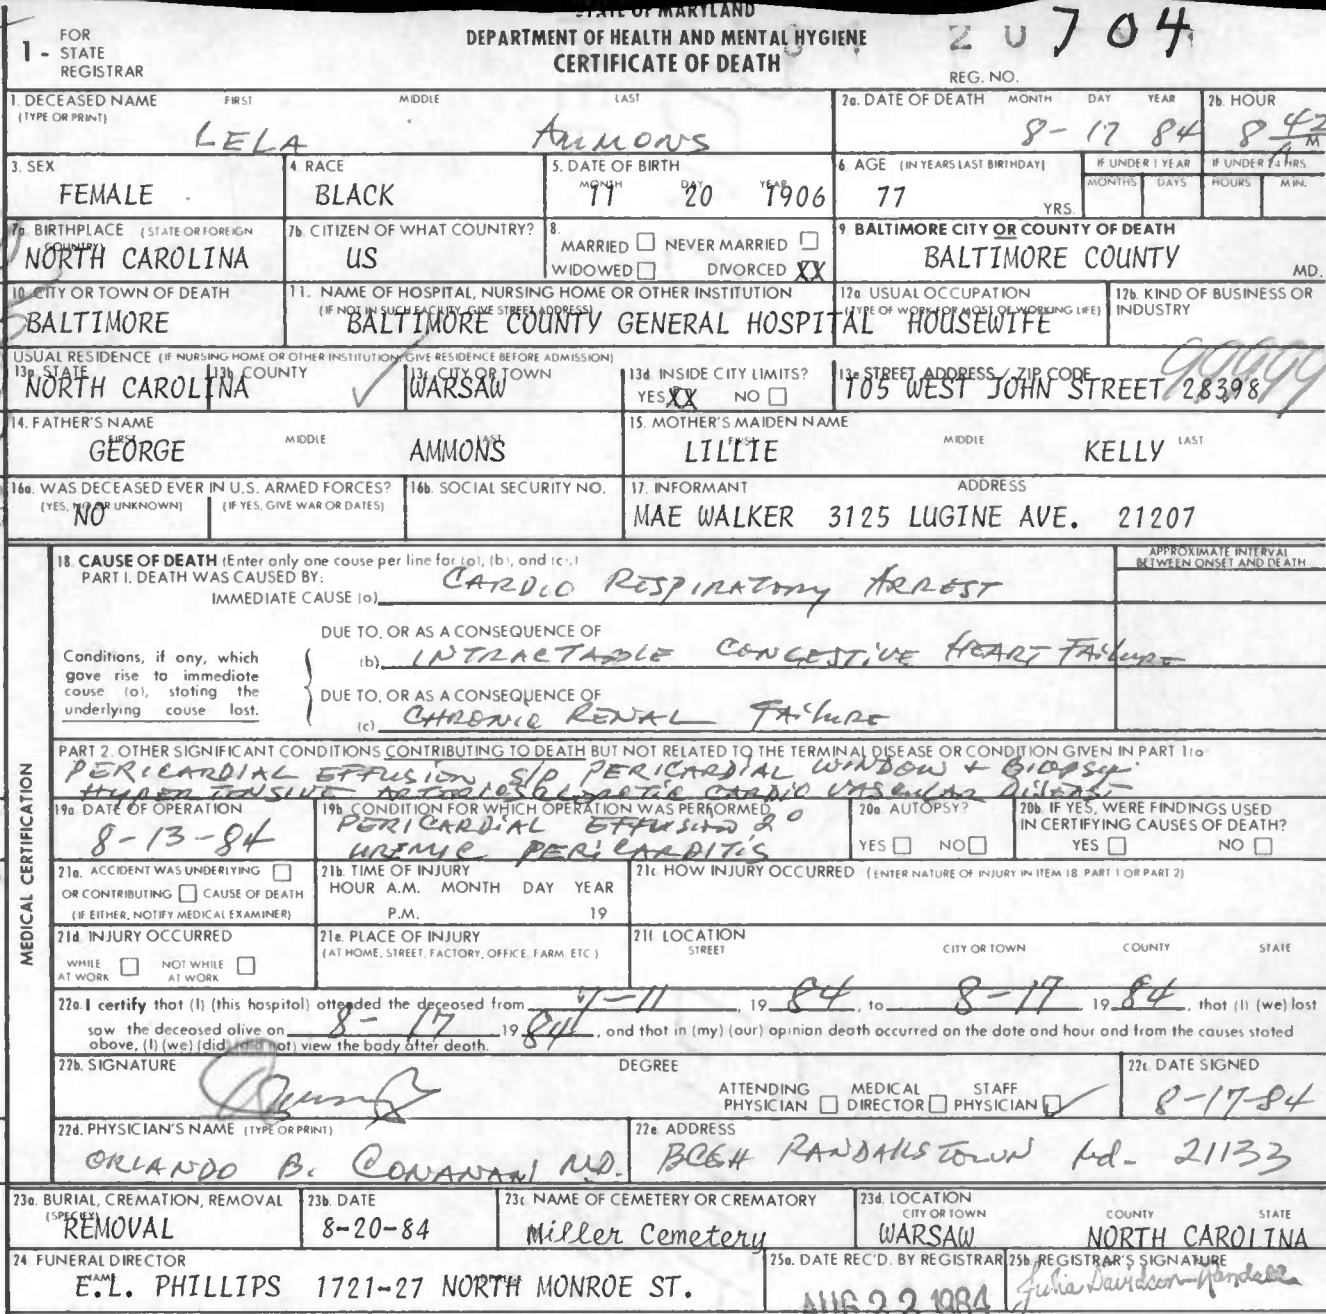 STATE OF MARYLAND
DEPARTMENT OF HEALTH AND MENTAL HYGIENE
CERTIFICATE OF DEATH
1- FOR STATE REGISTRAR
REG. NO. 704
1. DECEASED NAME (TYPE OR PRINT) FIRST MIDDLE LAST
LELA AMMONS
2a. DATE OF DEATH MONTH DAY YEAR
8-17 84
2b. HOUR
8 42 M
3. SEX
FEMALE
4. RACE
BLACK
5. DATE OF BIRTH MONTH DAY YEAR
11 20 1906
6. AGE (IN YEARS LAST BIRTHDAY)
77 YRS.
IF UNDER 1 YEAR MONTHS DAYS
IF UNDER 24 HRS HOURS MIN.
7a. BIRTHPLACE (STATE OR FOREIGN COUNTRY)
NORTH CAROLINA
7b. CITIZEN OF WHAT COUNTRY?
US
8. MARRIED NEVER MARRIED
WIDOWED DIVORCED XX
9. BALTIMORE CITY OR COUNTY OF DEATH
BALTIMORE COUNTY MD.
10. CITY OR TOWN OF DEATH
BALTIMORE
11. NAME OF HOSPITAL, NURSING HOME OR OTHER INSTITUTION
(IF NOT IN SUCH FACILITY, GIVE STREET ADDRESS)
BALTIMORE COUNTY GENERAL HOSPITAL
12a. USUAL OCCUPATION (TYPE OF WORK FOR MOST OF WORKING LIFE)
HOUSEWIFE
12b. KIND OF BUSINESS OR INDUSTRY
USUAL RESIDENCE (IF NURSING HOME OR OTHER INSTITUTION, GIVE RESIDENCE BEFORE ADMISSION)
13a. STATE
NORTH CAROLINA
13b. COUNTY
13c. CITY OR TOWN
WARSAW
13d. INSIDE CITY LIMITS?
YES XX NO
13e. STREET ADDRESS / ZIP CODE
105 WEST JOHN STREET 28398
99999
14. FATHER'S NAME FIRST MIDDLE LAST
GEORGE AMMONS
15. MOTHER'S MAIDEN NAME FIRST MIDDLE LAST
LILLIE KELLY
16a. WAS DECEASED EVER IN U.S. ARMED FORCES?
(YES, NO OR UNKNOWN) (IF YES, GIVE WAR OR DATES)
NO
16b. SOCIAL SECURITY NO.
17. INFORMANT ADDRESS
MAE WALKER 3125 LUGINE AVE. 21207
MEDICAL CERTIFICATION
18. CAUSE OF DEATH (Enter only one cause per line for (a), (b), and (c).)
APPROXIMATE INTERVAL BETWEEN ONSET AND DEATH
PART I. DEATH WAS CAUSED BY:
IMMEDIATE CAUSE (a) CARDIO RESPIRATORY ARREST
Conditions, if any, which gave rise to immediate cause (a), stating the underlying cause last.
DUE TO, OR AS A CONSEQUENCE OF
(b) INTRACTABLE CONGESTIVE HEART FAILURE
DUE TO, OR AS A CONSEQUENCE OF
(c) CHRONIC RENAL FAILURE
PART 2. OTHER SIGNIFICANT CONDITIONS CONTRIBUTING TO DEATH BUT NOT RELATED TO THE TERMINAL DISEASE OR CONDITION GIVEN IN PART 1(a)
PERICARDIAL EFFUSION, S/P PERICARDIAL WINDOW + BIOPSY.
HYPERTENSIVE ARTERIOSCLEROTIC CARDIO VASCULAR DISEASE
19a. DATE OF OPERATION
8-13-84
19b. CONDITION FOR WHICH OPERATION WAS PERFORMED
PERICARDIAL EFFUSION 2°
UREMIC PERICARDITIS
20a. AUTOPSY?
YES NO
20b. IF YES, WERE FINDINGS USED IN CERTIFYING CAUSES OF DEATH?
YES NO
21a. ACCIDENT WAS UNDERLYING
OR CONTRIBUTING CAUSE OF DEATH
(IF EITHER, NOTIFY MEDICAL EXAMINER)
21b. TIME OF INJURY
HOUR A.M. MONTH DAY YEAR
P.M. 19
21c. HOW INJURY OCCURRED (ENTER NATURE OF INJURY IN ITEM 18, PART 1 OR PART 2)
21d. INJURY OCCURRED
WHILE AT WORK NOT WHILE AT WORK
21e. PLACE OF INJURY
(AT HOME, STREET, FACTORY, OFFICE, FARM, ETC.)
21f. LOCATION
STREET CITY OR TOWN COUNTY STATE
22a. I certify that (I) (this hospital) attended the deceased from 7-11 19 84, to 8-17 19 84, that (I) (we) last
saw the deceased alive on 8-17 19 84, and that in (my) (our) opinion death occurred on the date and hour and from the causes stated
above, (I) (we) (did) (did not) view the body after death.
22b. SIGNATURE
DEGREE
ATTENDING PHYSICIAN MEDICAL DIRECTOR STAFF PHYSICIAN ✓
22c. DATE SIGNED
8-17-84
22d. PHYSICIAN'S NAME (TYPE OR PRINT)
ORLANDO B. CONANAN M.D.
22e. ADDRESS
BCGH RANDALLSTOWN Md- 21133
23a. BURIAL, CREMATION, REMOVAL (SPECIFY)
REMOVAL
23b. DATE
8-20-84
23c. NAME OF CEMETERY OR CREMATORY
Miller Cemetery
23d. LOCATION
CITY OR TOWN COUNTY STATE
WARSAW NORTH CAROLINA
24. FUNERAL DIRECTOR
NAME
E.L. PHILLIPS 1721-27 NORTH MONROE ST.
25a. DATE REC'D. BY REGISTRAR
AUG 22 1984
25b. REGISTRAR'S SIGNATURE
Julia Davidson-Randall